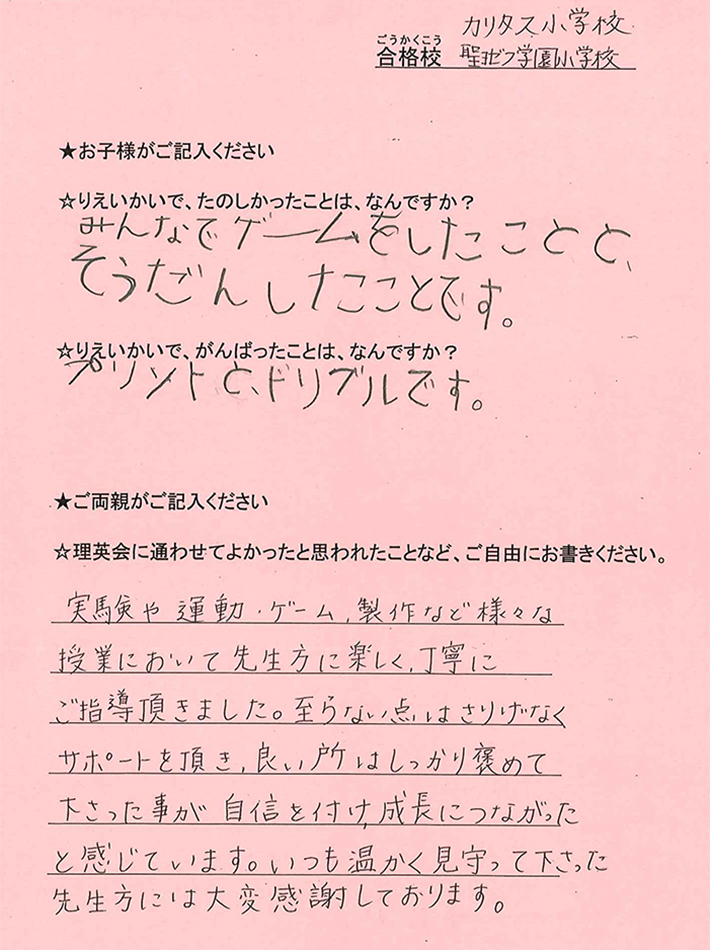 カリタス小学校
ごうかくこう
合格校 聖ヨゼフ学園小学校
★お子様がご記入ください
☆りえいかいで、たのしかったことは、なんですか？
みんなでゲームをしたことと、
そうだんしたことです。
☆りえいかいで、がんばったことは、なんですか？
プリントと、ドリブルです。
★ご両親がご記入ください
☆理英会に通わせてよかったと思われたことなど、ご自由にお書きください。
実験や運動・ゲーム、製作など様々な
授業において先生方に楽しく、丁寧に
ご指導頂きました。至らない点はさりげなく
サポートを頂き、良い所はしっかり褒めて
下さった事が自信を付け、成長につながった
と感じています。いつも温かく見守って下さった
先生方には大変感謝しております。